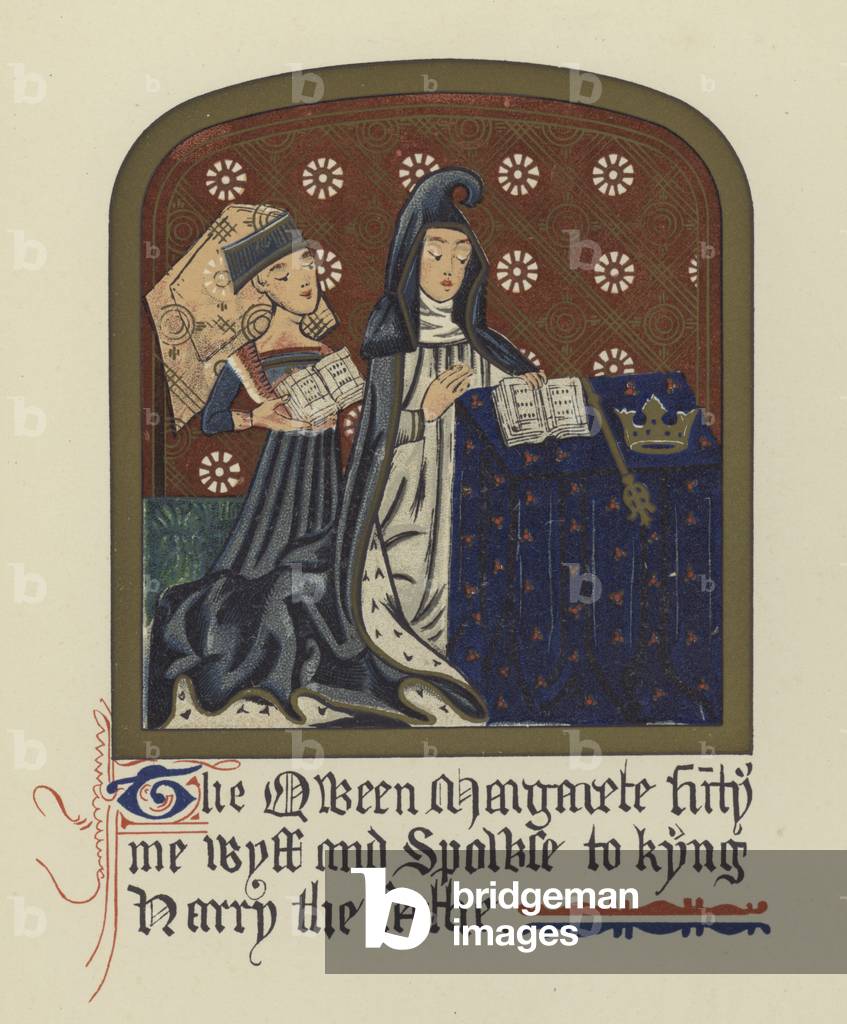 The Qween Margarete su̅ty
me wyff and Spowse to kyng
Harry the
bridgeman
images